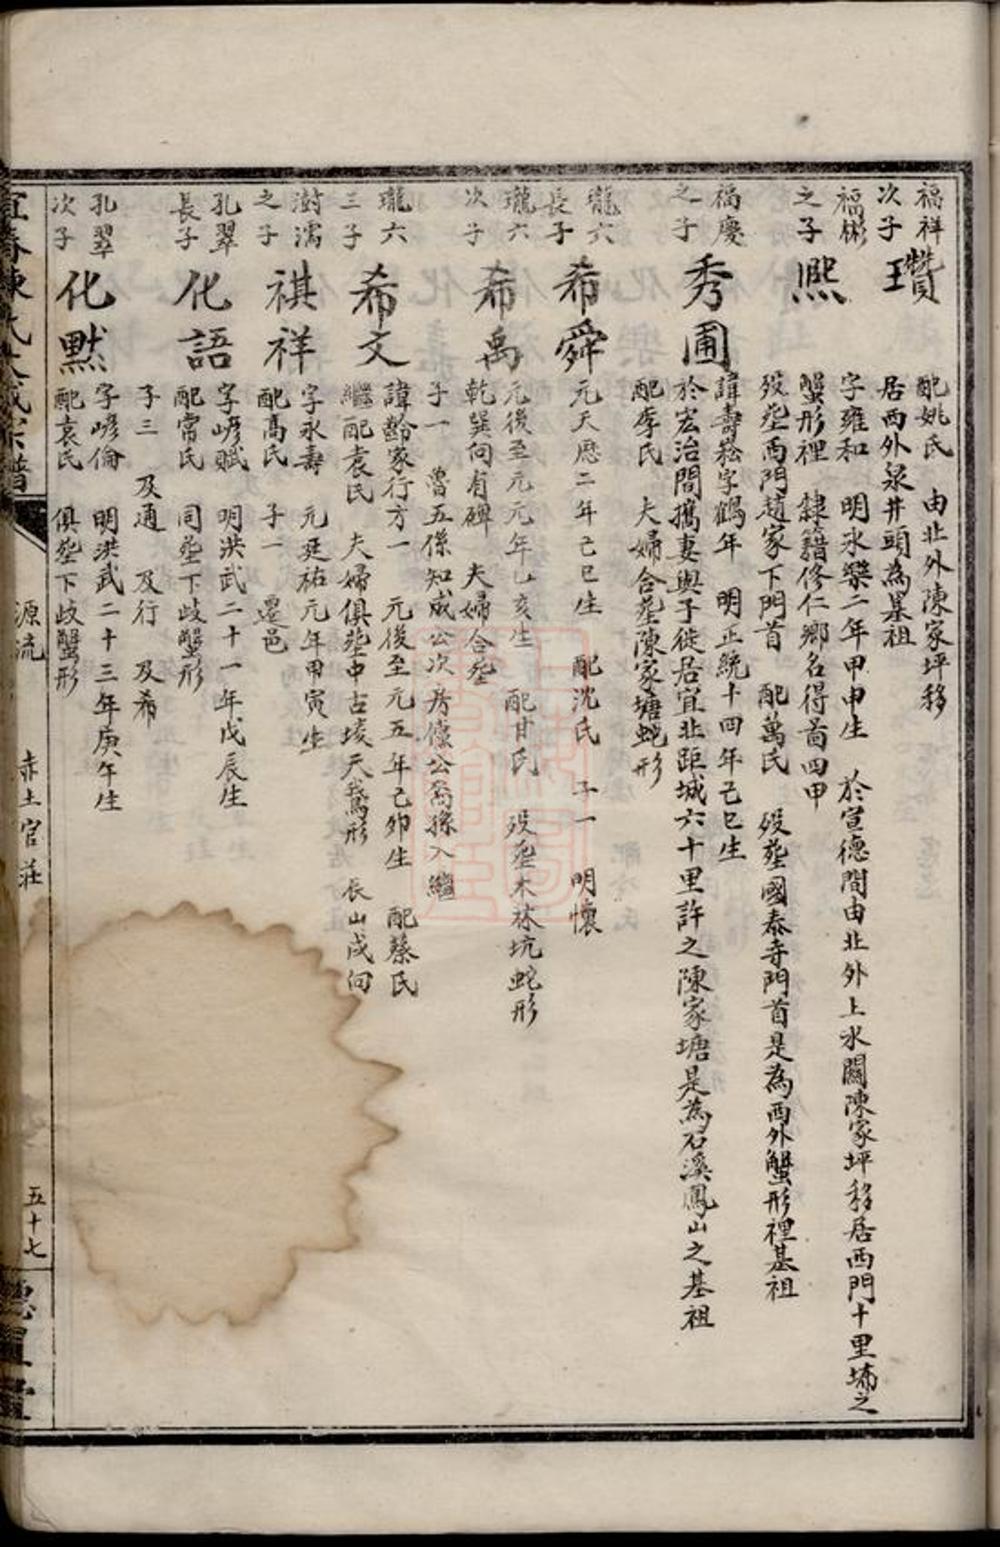 福祥
次子
瓚
配姚氏 由北外陳家坪移
居西外泉井頭為基祖
福彬
之子
熈
字雍和 明永樂二年甲申生 於宣德間由北外上水關陳家坪移居西門十里埽之
蟹形裡 隸籍修仁鄉名得啚四甲
歿塟西門趙家下門首 配萬氏 歿塟國泰寺門首是為西外蟹形裡基祖
福慶
之子
秀圃
諱壽崧字鶴年 明正統十四年己巳生
於宏治間攜妻與子徙居宜北距城六十里許之陳家塘是為石溪鳳山之基祖
配李氏 夫婦合塟陳家塘蛇形
瓏六
長子
希舜
元天歷二年己巳生 配沈氏 子一 明懷
瓏六
次子
希禹
元後至元元年乙亥生 配甘氏 歿塟木林坑蛇形
乾巽向有碑 夫婦合塟
子一 魯五係知成公次房儻公裔孫入繼
瓏六
三子
希文
諱齡家行方一 元後至元五年己卯生 配蔡氏
繼配袁氏 夫婦俱塟中古堎天鵞形 辰山戌向
澍濡
之子
祺祥
字永壽 元延祐元年甲寅生
配髙氏 子一 遷邑
孔翠
長子
化語
字嵃賦 明洪武二十一年戊辰生
配常氏 同塟下歧蟹形
子三 及通 及行 及希
孔翠
次子
化黙
字嵃倫 明洪武二十三年庚午生
配袁氏 俱塟下歧蟹形
宜春陳氏大成宗譜
源流
赤土官莊
五十七
德星堂